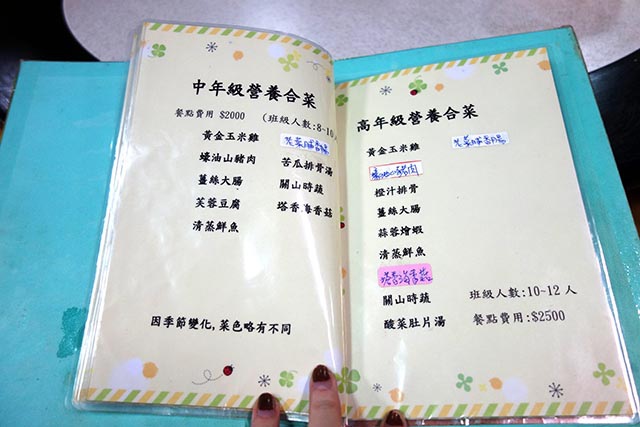 中年級營養合菜
餐點費用 $2000 (班級人數:8~10人
黃金玉米雞
蠔油山豬肉 苦瓜排骨湯
薑絲大腸 關山時蔬
芙蓉豆腐 塔香海香菇
清蒸鮮魚
因季節變化,菜色略有不同
高年級營養合菜
黃金玉米雞
橙汁排骨
薑絲大腸
蒜蓉燴蝦
清蒸鮮魚
塔香海香菇
關山時蔬 班級人數:10~12 人
酸菜肚片湯 餐點費用:$2500